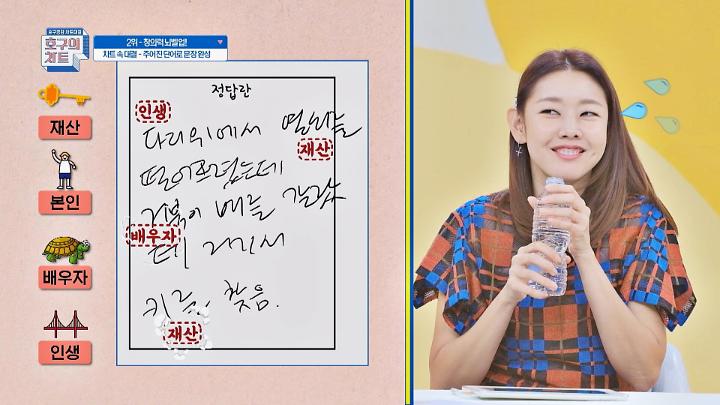 호구의
차트
2위 - 창의력 뇌벨업!
차트 속 대결 - 주어진 단어로 문장 완성
재산
본인
배우자
인생
정답란
인생
다리위에서 열쇠를
재산
떨어트렸는데
거북이 배를 갈랐는
배우자
데 거기서
키를 찾음.
재산